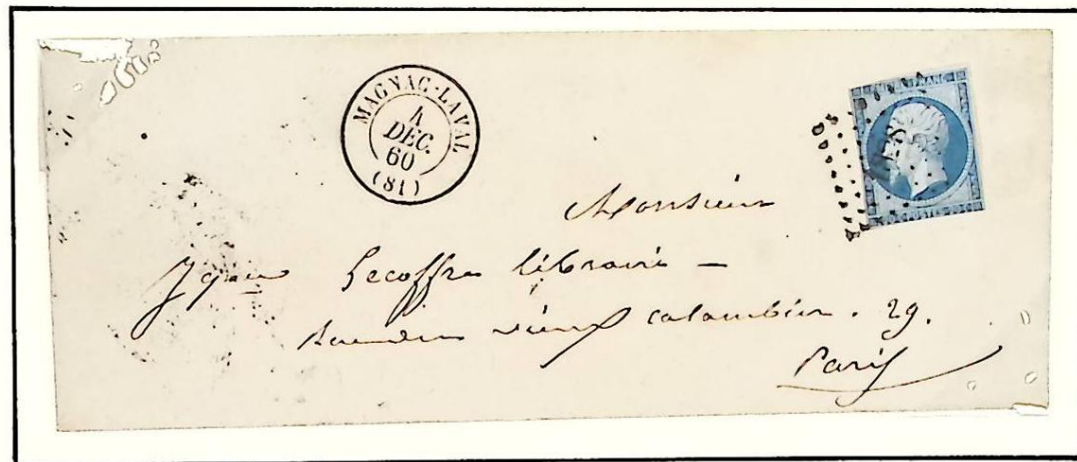 MAGNAC-LAVAL
4
DEC.
60
(81)
FRANC
POSTES
Monsieur
Lecoffre libraire –
Rue du vieux colombier . 29.
Paris